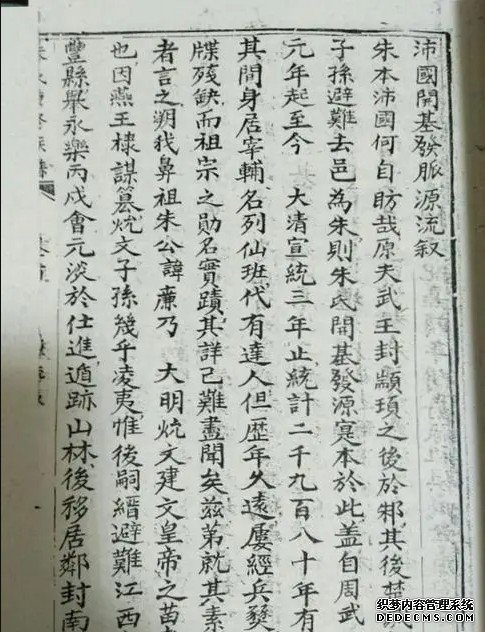 沛國開基發脈源流叙
朱本沛國何自昉哉原夫武王封顓頊之後於邾其後楚
子孫避難去邑為朱則朱氏開基發源寔本於此盖自周武
元年起至今 大清宣統三年止統計二千九百八十年有
其間身居宰輔名列仙班代有達人但歷年久遠屢經兵燹
牒殘缺而祖宗之勛名實蹟其詳已難盡聞矣兹第就其素
者言之朔我鼻祖朱公諱廉乃 大明炕文建文皇帝之苗
也因燕王棣謀篡炕文子孫幾乎凌夷惟後嗣縉避難江西
豐縣舉永樂丙戌會元淡於仕進遁跡山林後移居鄰封南
织梦内容管理系统
DEDECMS.COM